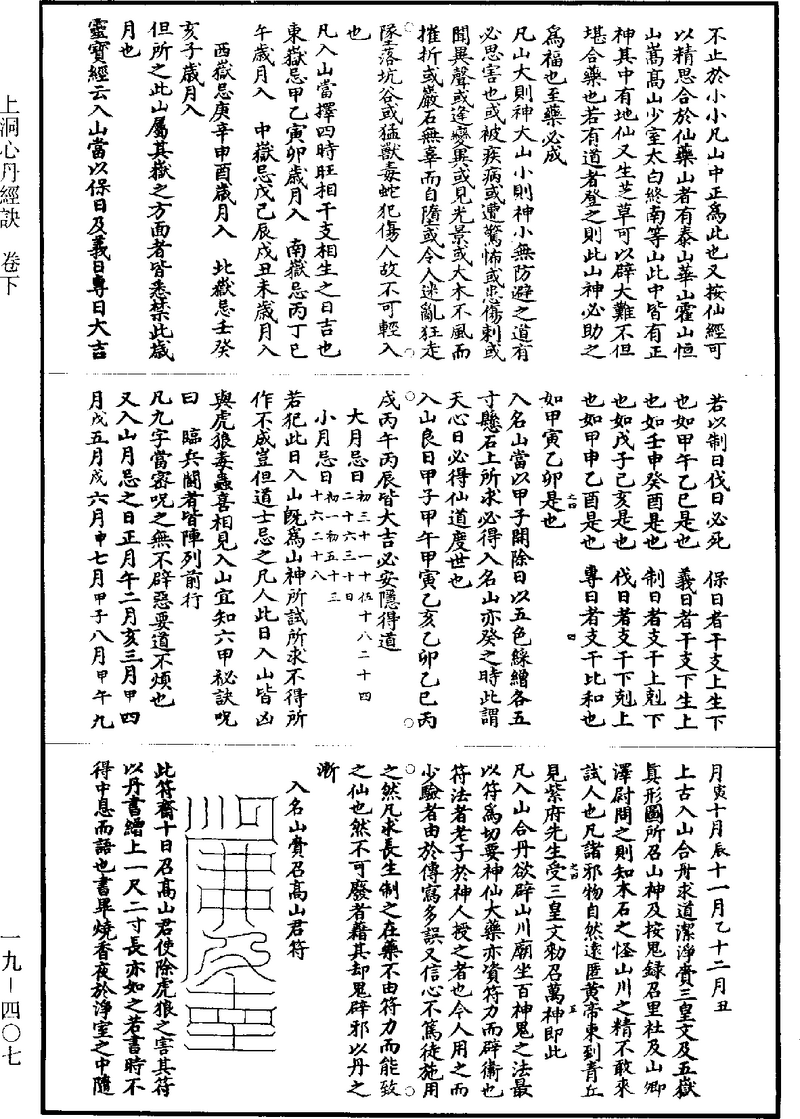 上洞心丹經訣　卷下
一九－四〇七
不止於小小凡山中正為此也又按仙經可
以精思合於仙藥山者有泰山華山霍山恒
山嵩高山少室太白終南等山此中皆有正
神其中有地仙又生芝草可以辟大難不但
堪合藥也若有道者登之則此山神必助之
為福也至藥必成
凡山大則神大山小則神小無防避之道有
必患害也或被疾病或遭驚怖或患傷刺或
聞異聲或逢變異或見光景或大木不風而
摧折或巖石無辜而自墮或令人迷亂狂走
墜落坑谷或猛獸毒蛇犯傷人故不可輕入
也
凡入山當擇四時旺相干支相生之日吉也
東嶽忌甲乙寅卯歲月入　南嶽忌丙丁巳
午歲月入　中嶽忌戊己辰戌丑未歲月入
西嶽忌庚辛申酉歲月入　北嶽忌壬癸
亥子歲月入
但所之此山屬其嶽之方面者皆悉禁此歲
月也
靈寶經云入山當以保日及義日專日大吉
若以制日伐日必死　保日者干支上生下
也如甲午乙巳是也　義日者干支下生上
也如壬申癸酉是也　制日者支干上剋下
也如戊子己亥是也　伐日者支干下剋上
也如甲申乙酉是也　專日者支干比和也
如甲寅乙卯是也
入名山當以甲子開除日以五色綵繒各五
寸懸石上所求必得入名山亦癸之時此謂
天心日必得仙道度世也
入山良日甲子甲午甲寅乙亥乙卯乙巳丙
戌丙午丙辰皆大吉必安隱得道
大月忌日初三十一十伍十八二十四
二十六三十日
小月忌日初一初五十三
十六二十八
若犯此日入山既為山神所試所求不得所
作不成豈但道士忌之凡人此日入山皆凶
與虎狼毒蟲喜相見入山宜知六甲祕訣呪
曰　臨兵鬬者皆陣列前行
凡九字當密呪之無不辟惡要道不煩也
又入山月忌之日正月午二月亥三月甲四
月戌五月戌六月申七月甲子八月甲午九
月寅十月辰十一月乙十二月丑
上古入山合丹求道潔淨賫三皇文及五嶽
真形圖所召山神及按鬼錄召里社及山卿
澤尉問之則知木石之怪山川之精不敢來
試人也凡諸邪物自然遠匿黃帝東到青丘
見紫府先生受三皇文劾召萬神即此
凡入山合丹欲辟山川廟坐百神鬼之法最
以符為切要神仙大藥亦資符力而辟衛也
符法者老子於神人授之者也今人用之而
少驗者由於傳寫多誤又信心不篤徒施用
之然凡求長生制之在藥不由符力而能致
之仙也然不可廢者藉其却鬼辟邪以丹之
漸
入名山賫召高山君符
此符齋十日召高山君使除虎狼之害其符
以丹書繒上一尺二寸長亦如之若書時不
得中息而語也書畢燒香夜於淨室之中隨